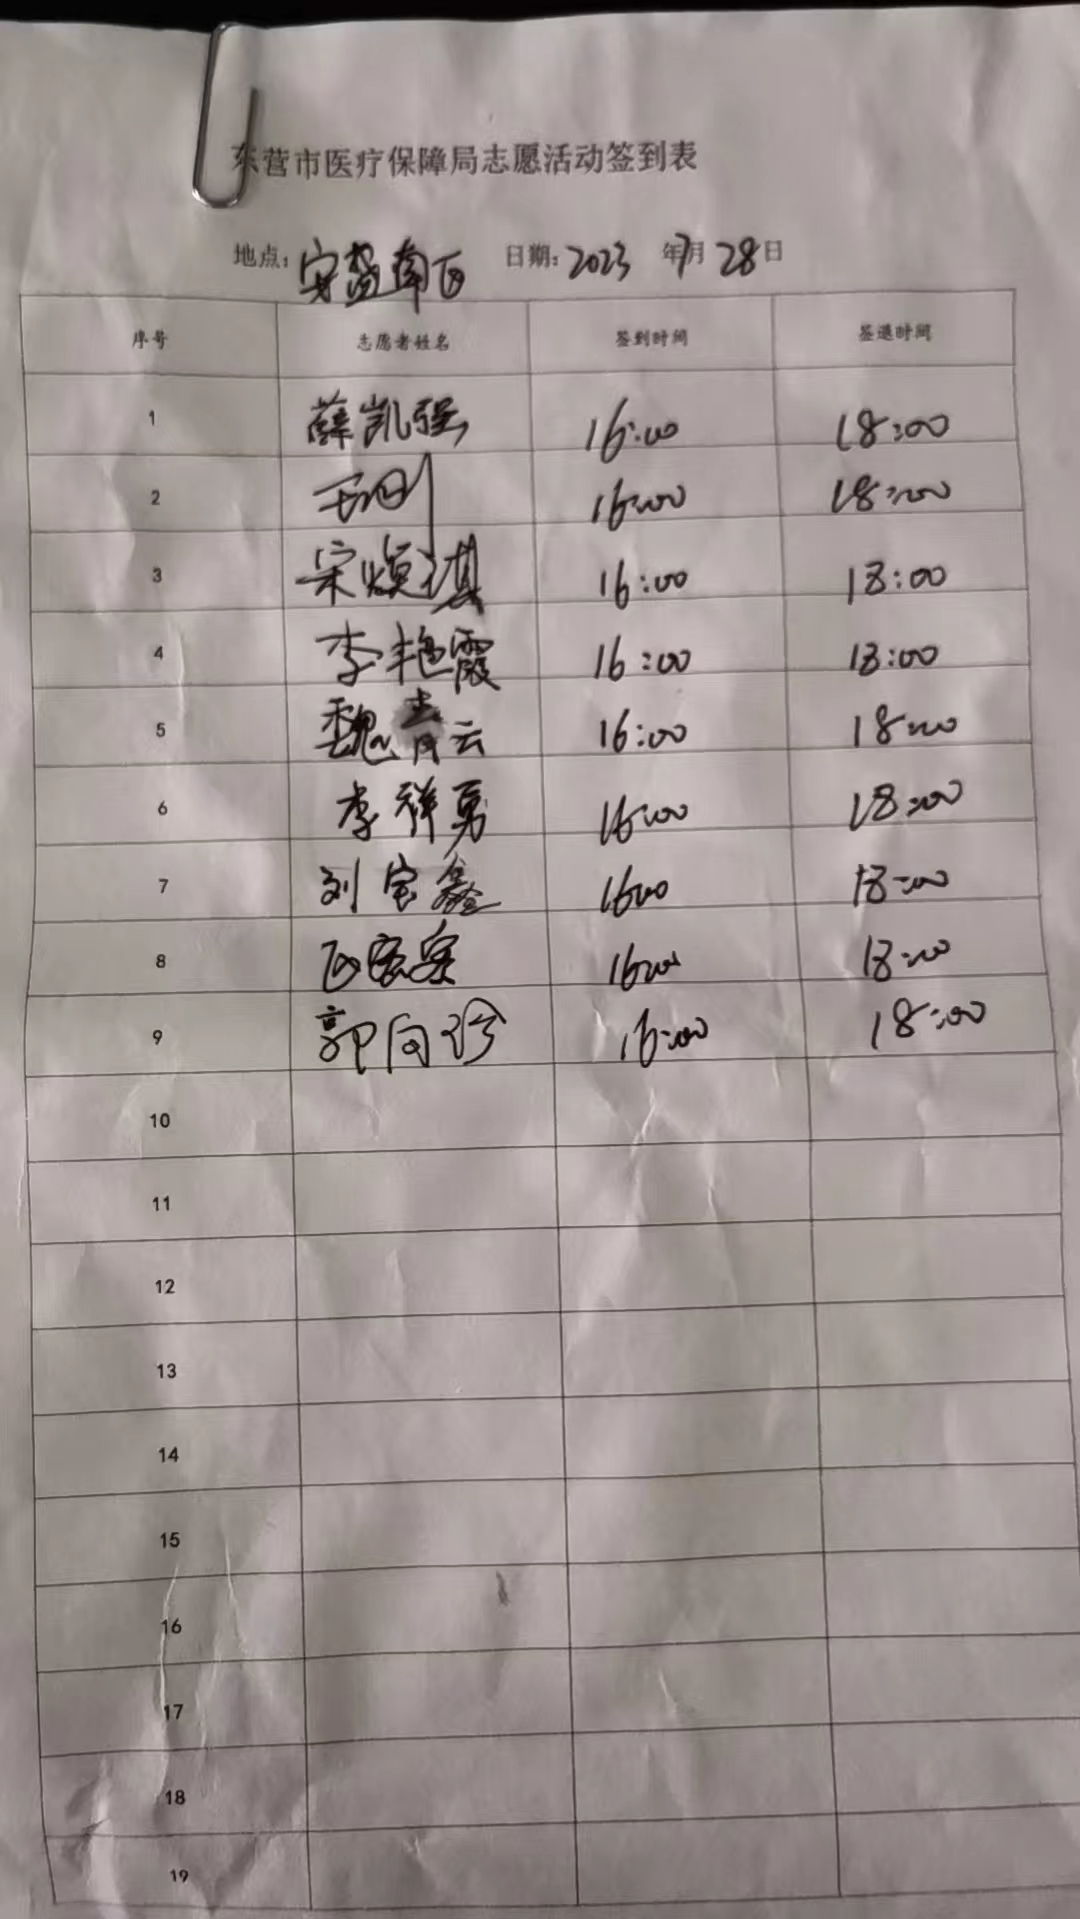 东营市医疗保障局志愿活动签到表
地点：安盘南区 日期：2023 年7月28日
序号 志愿者姓名 签到时间 签退时间
1 薛凯强 16:00 18:00
2 王刚 16:00 18:00
3 宋焕琪 16:00 18:00
4 李艳霞 16:00 18:00
5 魏青云 16:00 18:00
6 李祥勇 16:00 18:00
7 刘宝鑫 16:00 18:00
8 16:00 18:00
9 郭向珍 16:00 18:00
10
11
12
13
14
15
16
17
18
19